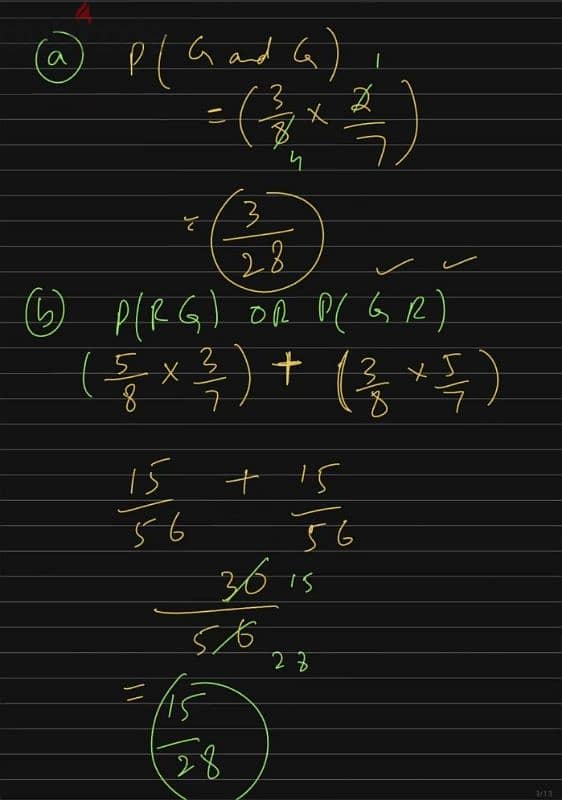 (a) P(G and G)
= (3/8 × 2/7) 1 4
= 3/28
(b) P(RG) OR P(GR) ✓ ✓
(5/8 × 3/7) + (3/8 × 5/7)
15/56 + 15/56
30/56 15 28
= 15/28
3/13